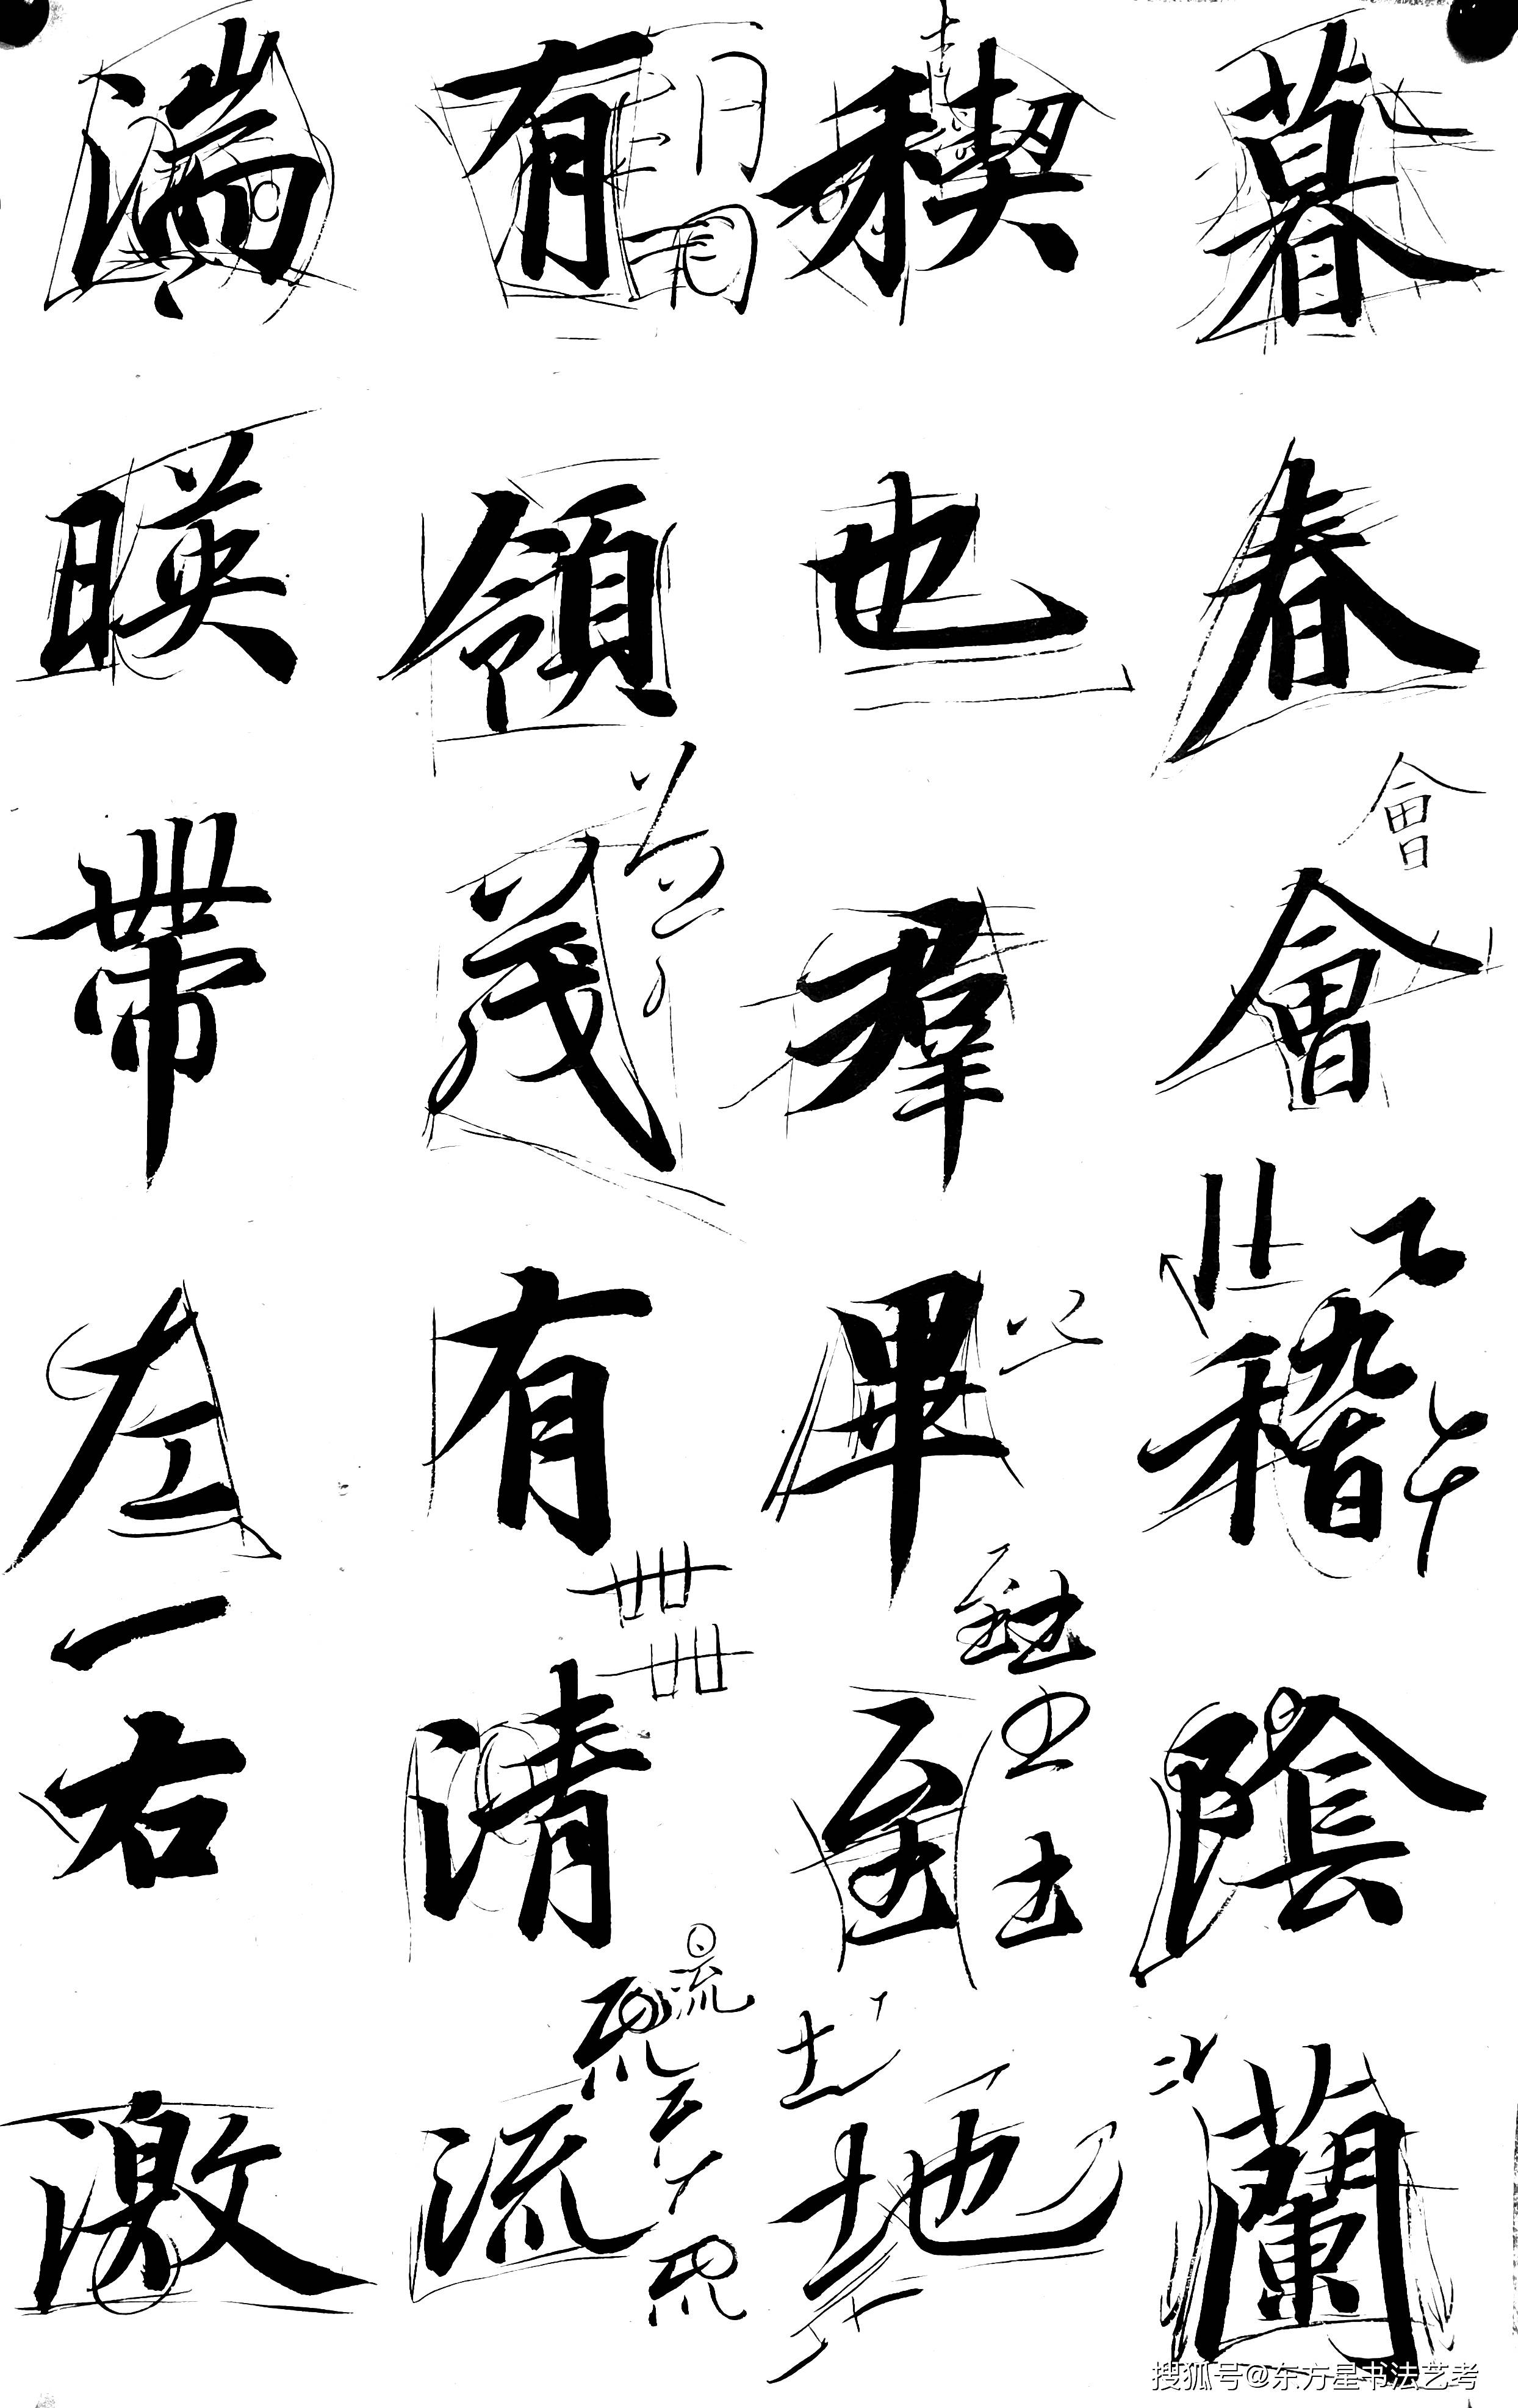 暮春會稽陰蘭
稧也羣畢至地
有領茂有清流
湍暎帶左右激
會
流
搜狐号@东方星书法艺考